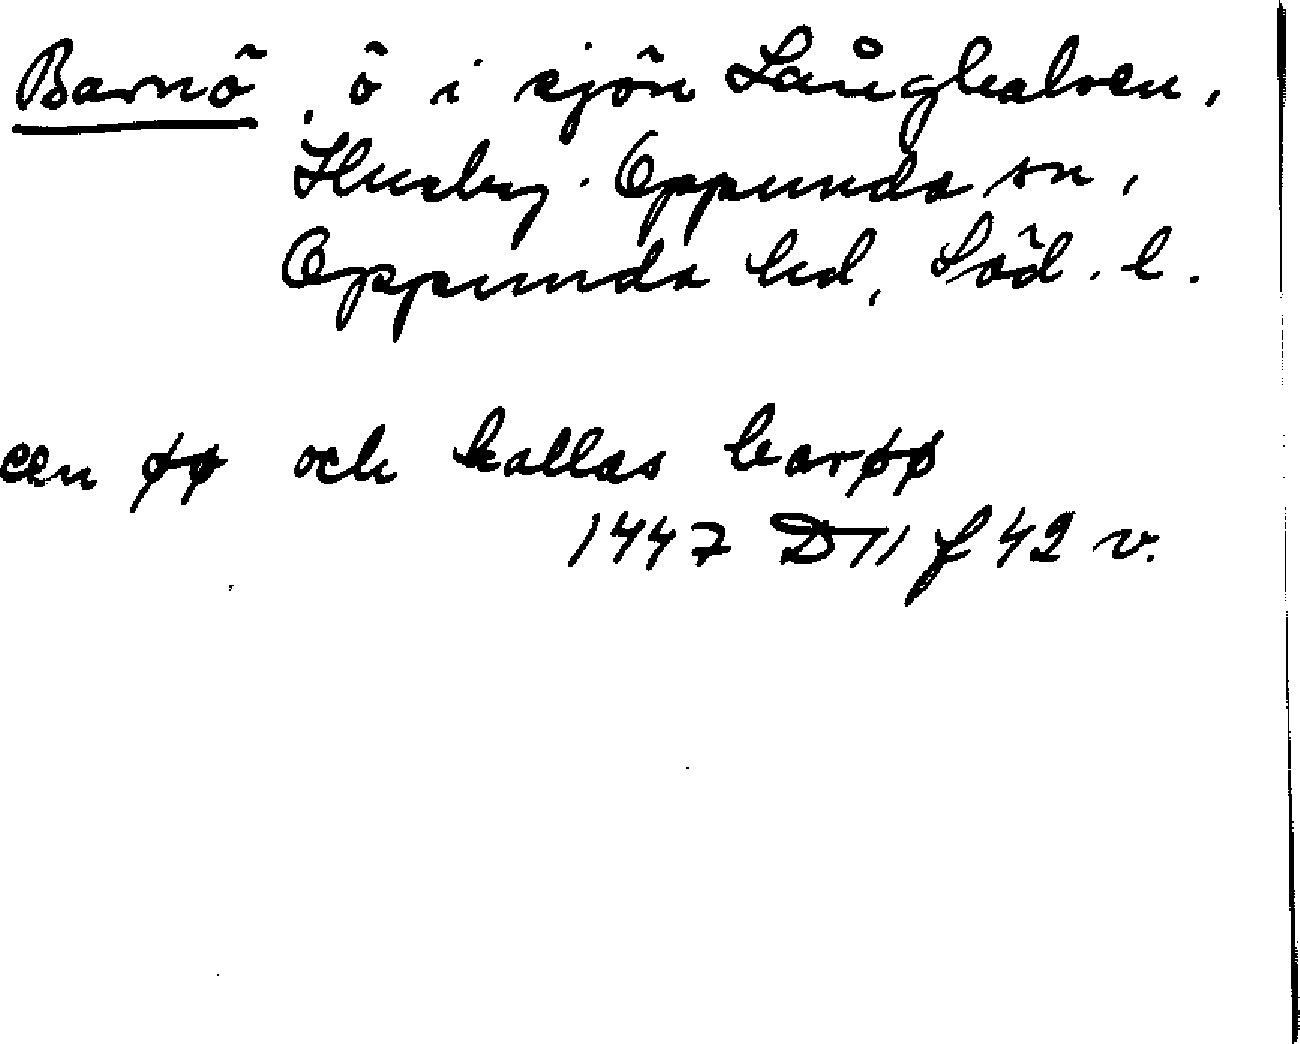 Barnö, ö i sjön Långhalsen,
Husby-Oppunda sn,
Oppunda hd, Söd. l.
en øø och kallas barøø
1447 D 11 f 42 v.